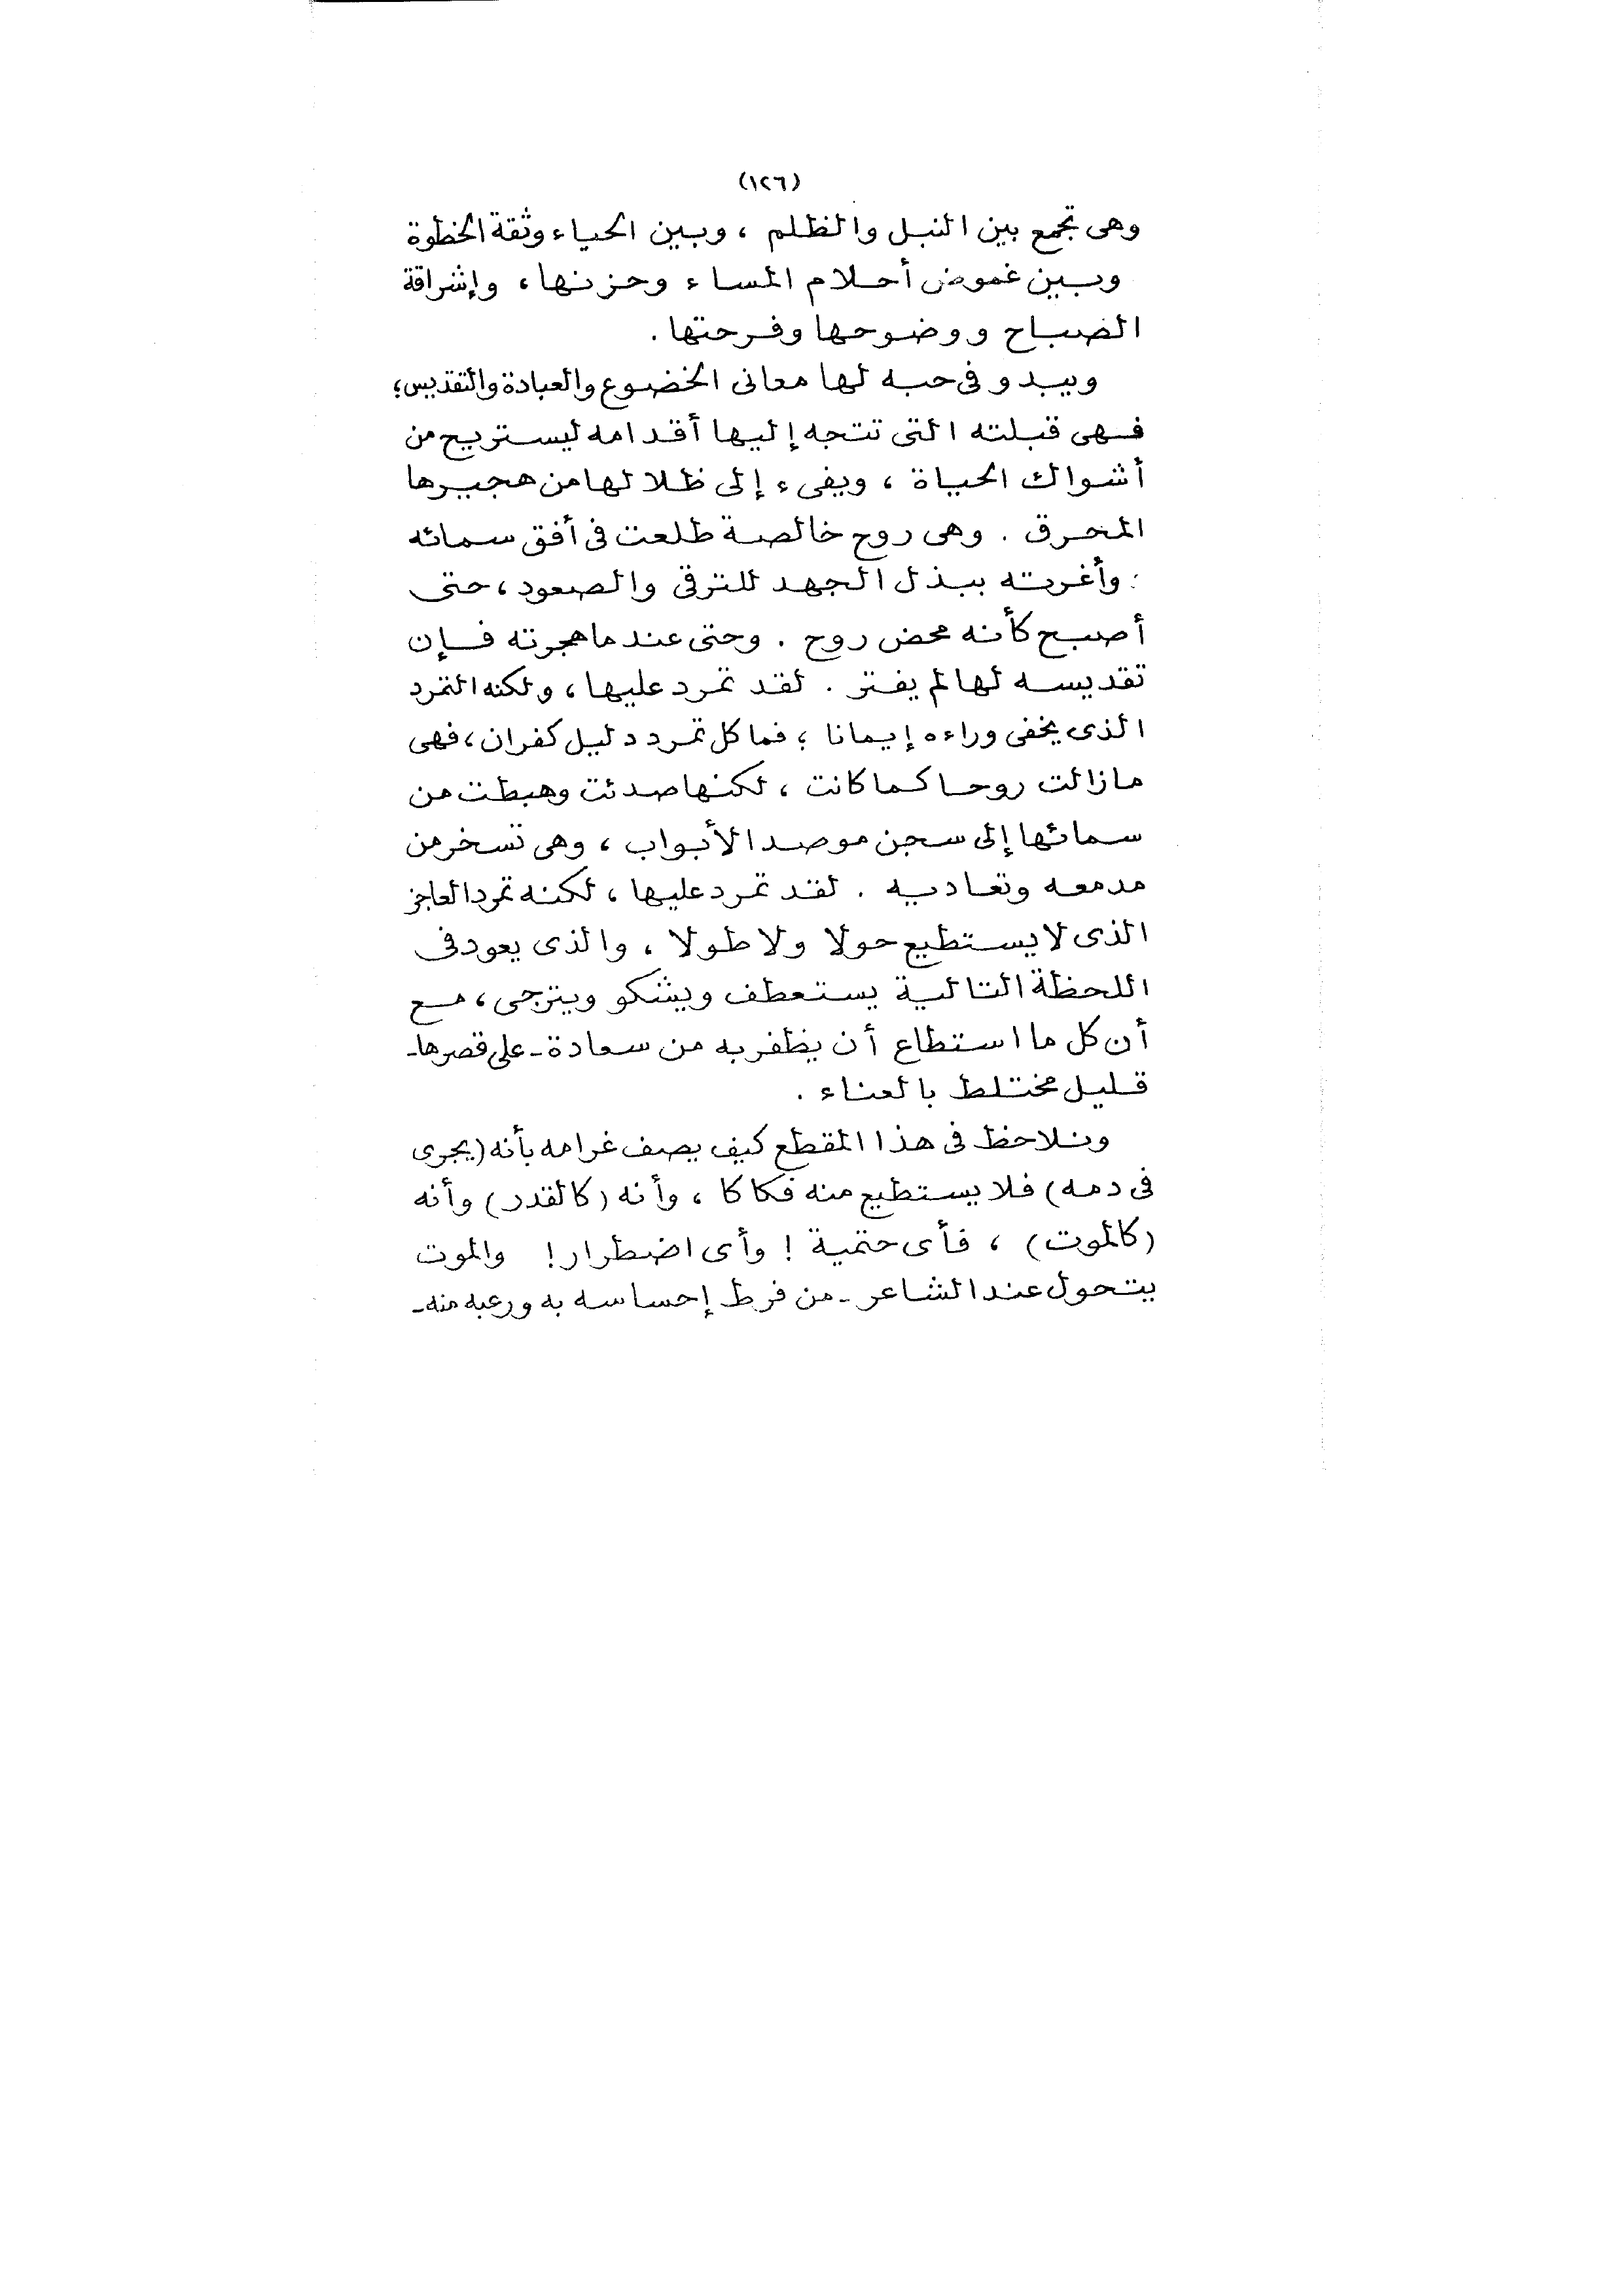 (١٢٦)
وهى تجمع بين النبل والظلم ، وبين الحياء وثقة الخطوة
وبين غموض أحلام المساء وحزنها ، وإشراقة
الصباح ووضوحها وفرحتها .
ويبدو فى حبه لها معانى الخضوع والعبادة والتقديس؛
فهى قبلته التى تتجه إليها أقدامه ليستريح من
أشواك الحياة ، ويفىء إلى ظلالها من هجيرها
المحرق . وهى روح خالصة طلعت فى أفق سمائه
وأغرته ببذل الجهد للترقى والصعود ، حتى
أصبح كأنه محض روح . وحتى عندما هجرته فإن
تقديسه لها لم يفتر . لقد تمرد عليها ، ولكنه التمرد
الذى يخفى وراءه إيمانا ؛ فما كل تمرد دليل كفران ، فهى
مازالت روحا كما كانت ، لكنها صدئت وهبطت من
سمائها إلى سجن موصد الأبواب ، وهى تسخر من
مدمعه وتعاديه . لقد تمرد عليها ، لكنه تمرد العاجز
الذى لا يستطيع حولا ولا طولا ، والذى يعود فى
اللحظة التالية يستعطف ويشكو ويترجى ، مع
أن كل ما استطاع أن يظفر به من سعادة - على قصرها -
قليل مختلط بالعناء .
ونلاحظ فى هذا المقطع كيف يصف غرامه بأنه (يجرى
فى دمه) فلا يستطيع منه فكاكا ، وأنه (كالقدر) وأنه
(كالموت) ، فأى حتمية ! وأى اضطرار ! والموت
يتحول عند الشاعر - من فرط إحساسه به ورعبه منه -